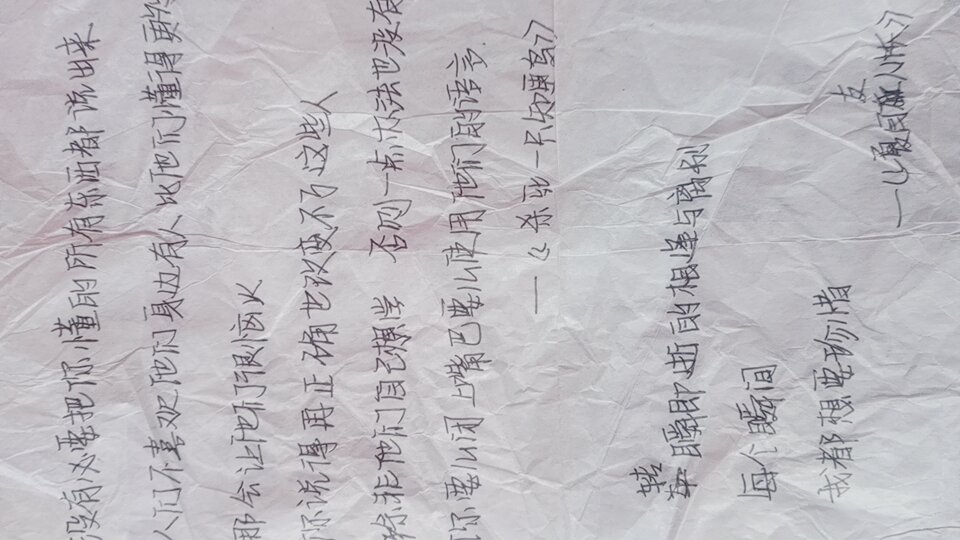 没有必要把你懂的所有东西都说出来
人们不喜欢他们身边有人比他们懂得更多
那会让他们很恼火
你说得再正确也改变不了这些人
除非他们自己想学 否则一点办法也没有
你要么闭上嘴巴要么使用他们的语言
—《杀死一只知更鸟》
转瞬即逝的相逢与离别
每个瞬间
我都想要珍惜
—《夏目友人帐》